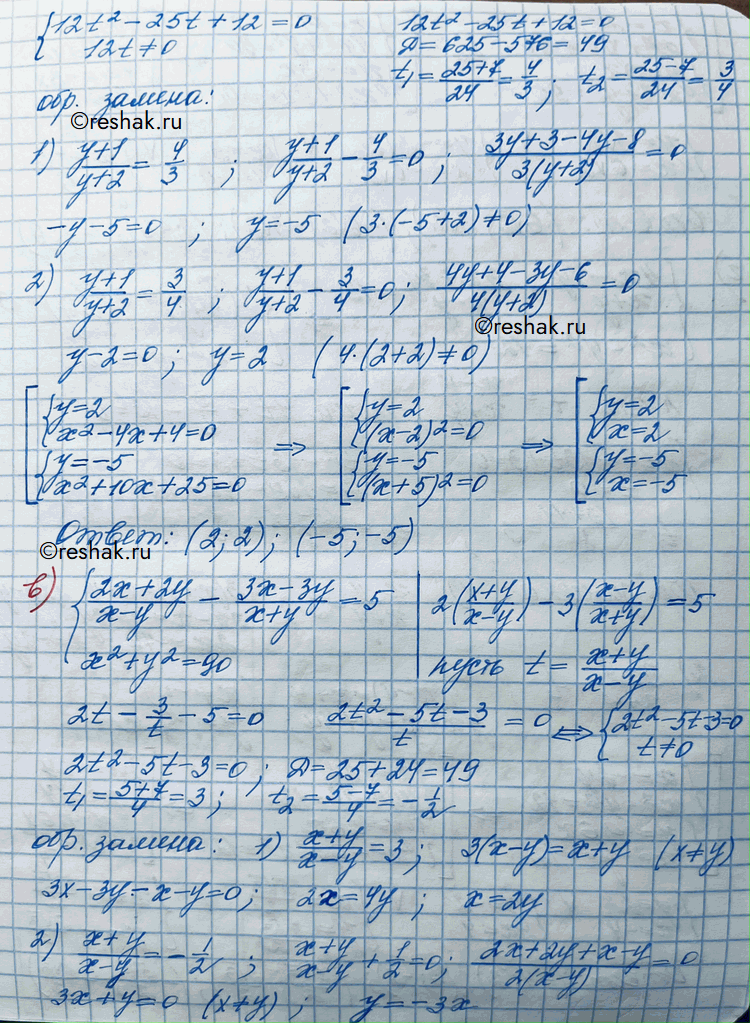 {12t² - 25t + 12 = 0    12t² - 25t + 12 = 0
12t ≠ 0    Д = 625 - 576 = 49
t₁ = (25+7)/24 = 4/3 ;  t₂ = (25-7)/24 = 3/4
обр. замена:
©reshak.ru
1) (y+1)/(y+2) = 4/3 ;  (y+1)/(y+2) - 4/3 = 0 ;  (3y+3-4y-8)/(3(y+2)) = 0
-y-5=0 ;  y=-5  (3·(-5+2)≠0)
2) (y+1)/(y+2) = 3/4 ;  (y+1)/(y+2) - 3/4 = 0 ;  (4y+4-3y-6)/(4(y+2)) = 0
©reshak.ru
y-2=0 ;  y=2  (4·(2+2)≠0)
[ {y=2    [ {y=2    [ {y=2
x²-4x+4=0  ⇒  (x-2)²=0  ⇒  x=2
{y=-5    {y=-5    {y=-5
x²+10x+25=0    (x+5)²=0    x=-5
Ответ: (2;2); (-5;-5)
©reshak.ru
в) {(2x+2y)/(x-y) - (3x-3y)/(x+y) = 5 | 2((x+y)/(x-y)) - 3((x-y)/(x+y)) = 5
x²+y²=90 | пусть t = (x+y)/(x-y)
2t - 3/t - 5 = 0    (2t²-5t-3)/t = 0 ⇔ {2t²-5t-3=0
t≠0
2t²-5t-3=0 ;  Д=25+24=49
t₁ = (5+7)/4 = 3 ;  t₂ = (5-7)/4 = -1/2
обр. замена: 1) (x+y)/(x-y) = 3 ;  3(x-y)=x+y  (x≠y)
3x-3y-x-y=0 ;  2x=4y ;  x=2y
2) (x+y)/(x-y) = -1/2 ;  (x+y)/(x-y) + 1/2 = 0 ;  (2x+2y+x-y)/(2(x-y)) = 0
3x+y=0  (x≠y) ;  y=-3x